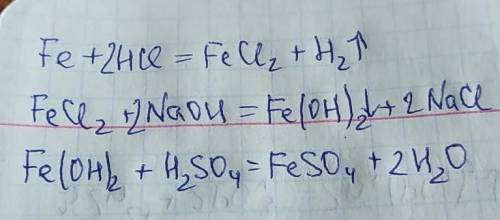 Fe + 2HCl = FeCl₂ + H₂↑
FeCl₂ + 2NaOH = Fe(OH)₂↓ + 2NaCl
Fe(OH)₂ + H₂SO₄ = FeSO₄ + 2H₂O